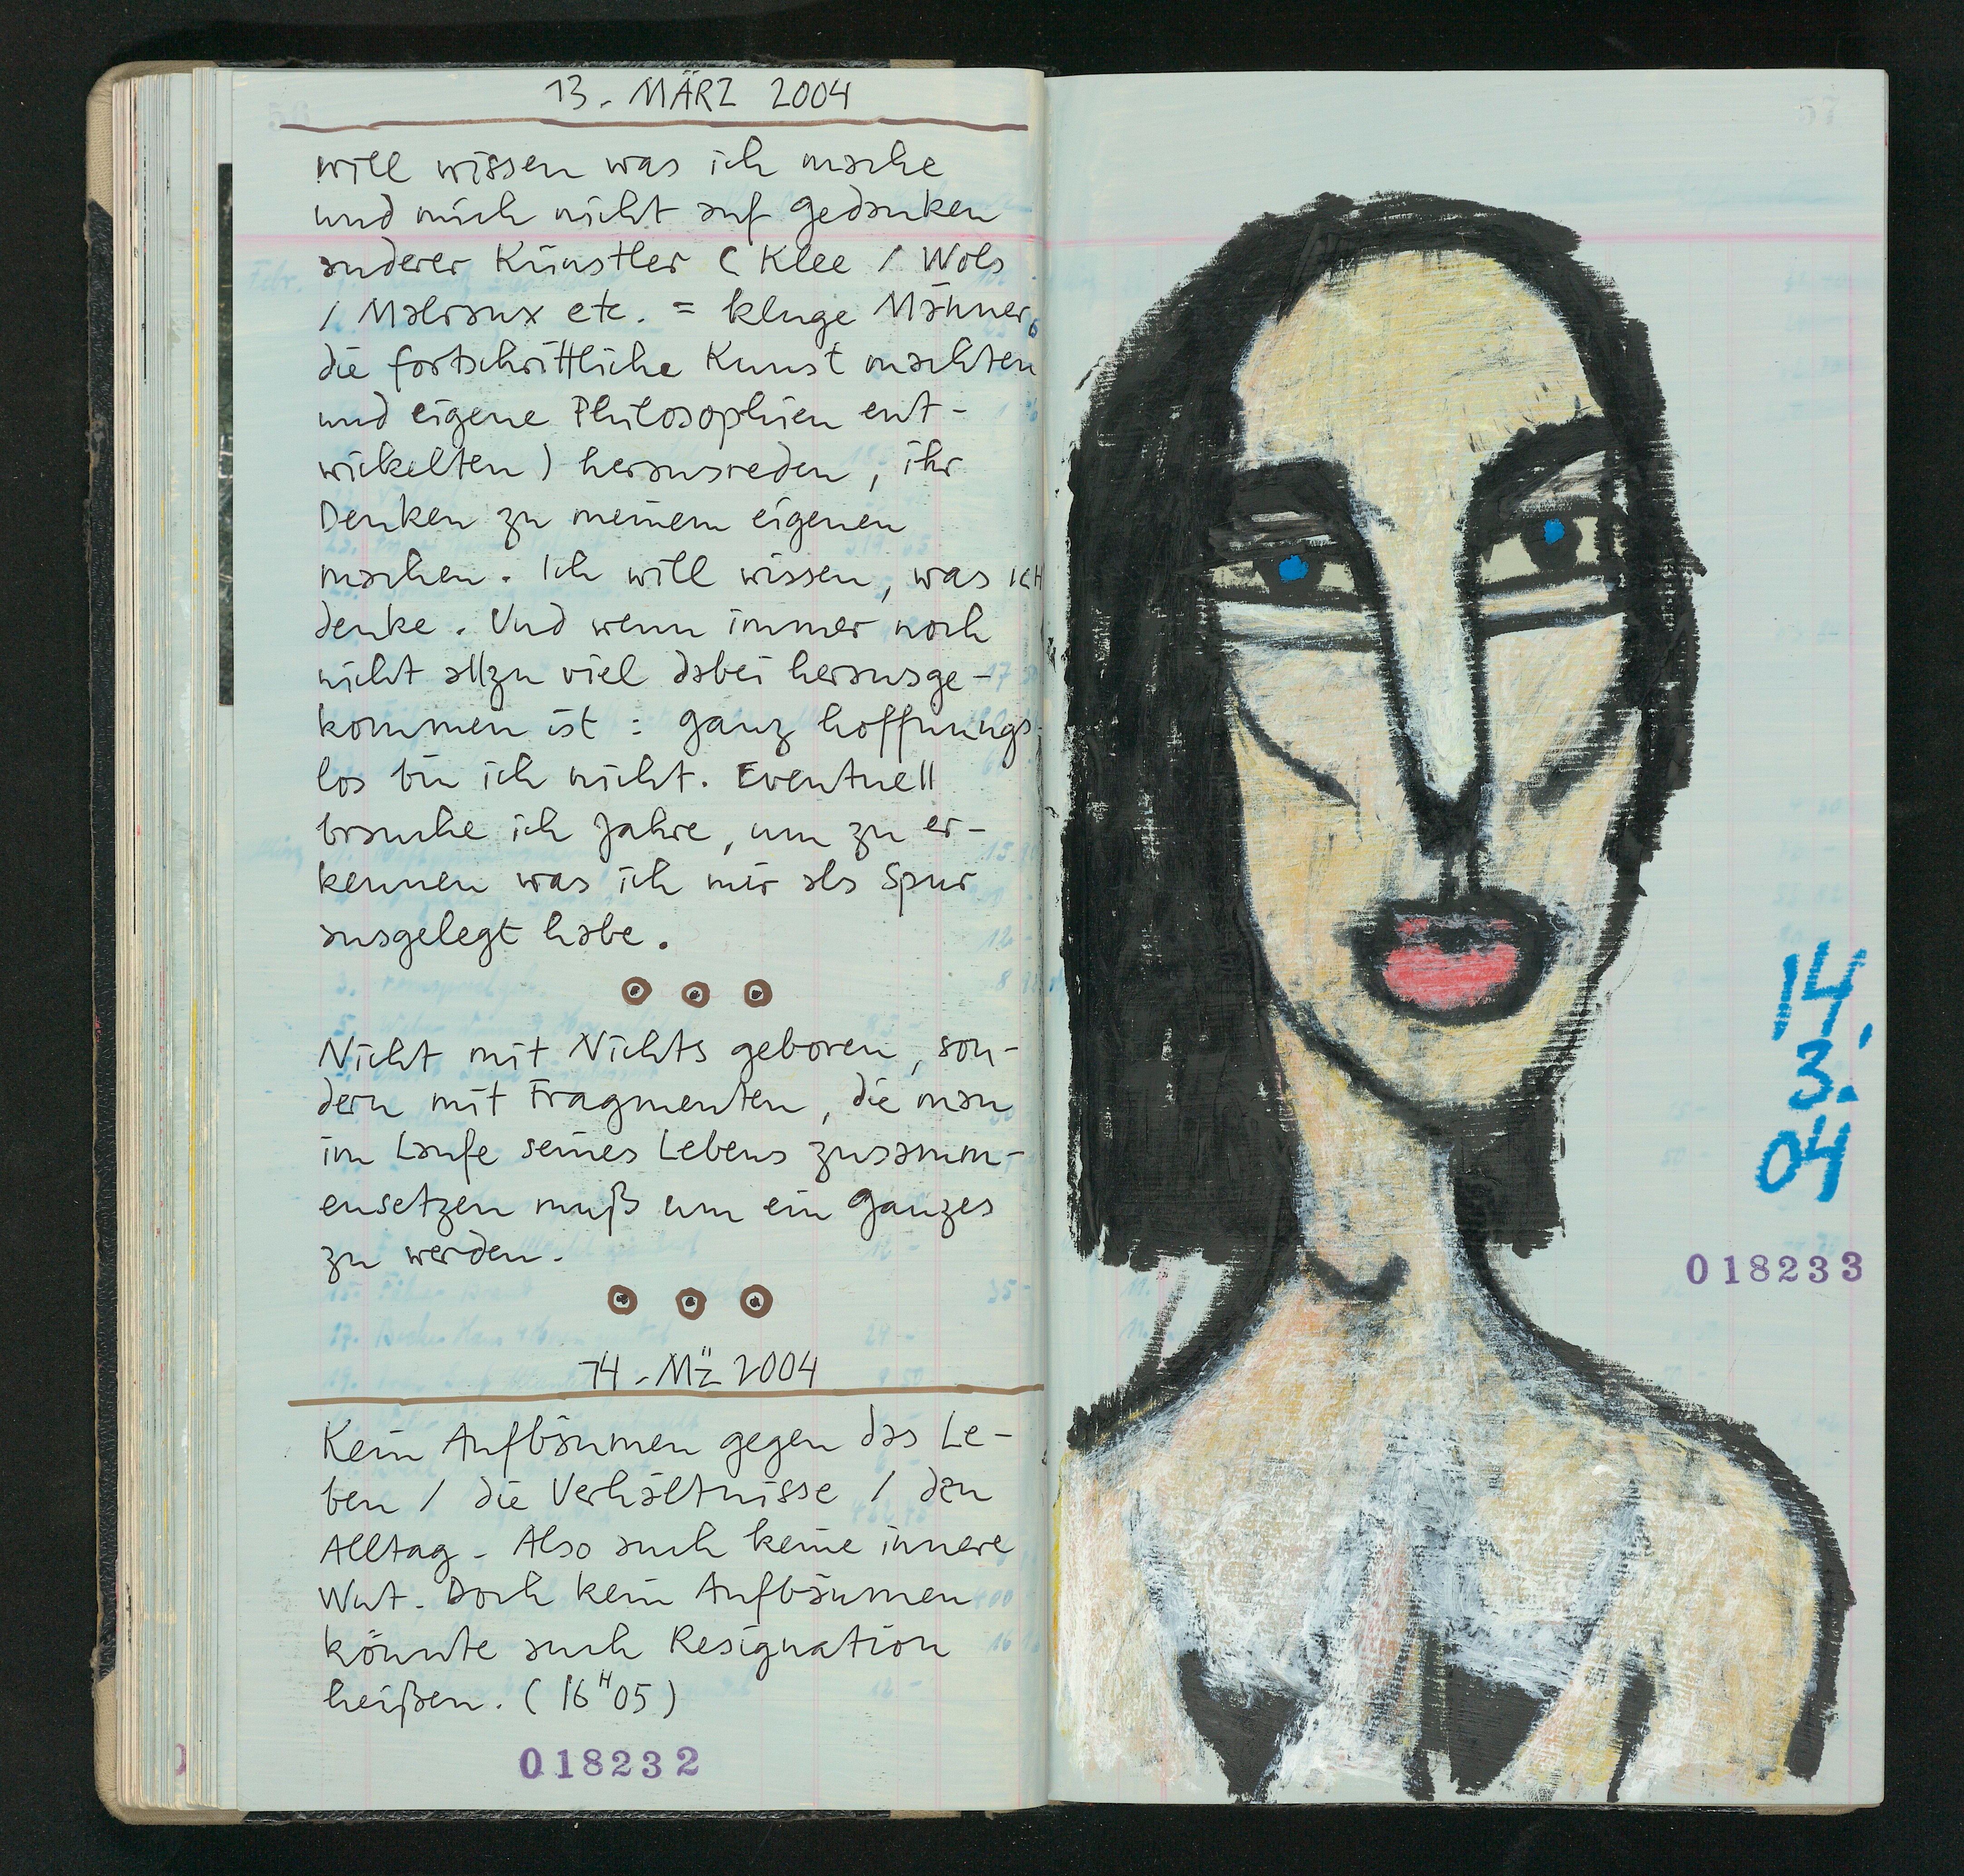 13. MÄRZ 2004
will wissen was ich mache
und mich nicht auf Gedanken
anderer Künstler ( Klee / Wols
/ Malraux etc. = kluge Männer,
die fortschrittliche Kunst machten
und eigene Philosophien ent-
wickelten ) herausreden, ihr
Denken zu meinem eigenen
machen. Ich will wissen, was ICH
denke. Und wenn immer noch
nicht allzu viel dabei herausge-
kommen ist : ganz hoffnungs-
los bin ich nicht. Eventuell
brauche ich Jahre, um zu er-
kennen was ich mir als Spur
ausgelegt habe.
Nicht mit Nichts geboren, son-
dern mit Fragmenten, die man
im Laufe seines Lebens zusamm-
ensetzen muß um ein Ganzes
zu werden.
14. MÄZ 2004
Kein Aufbäumen gegen das Le-
ben / die Verhältnisse / den
Alltag. Also auch keine innere
Wut. Doch kein Aufbäumen
könnte auch Resignation
heißen. (16H05)
018232
57
14.
3.
04
018233